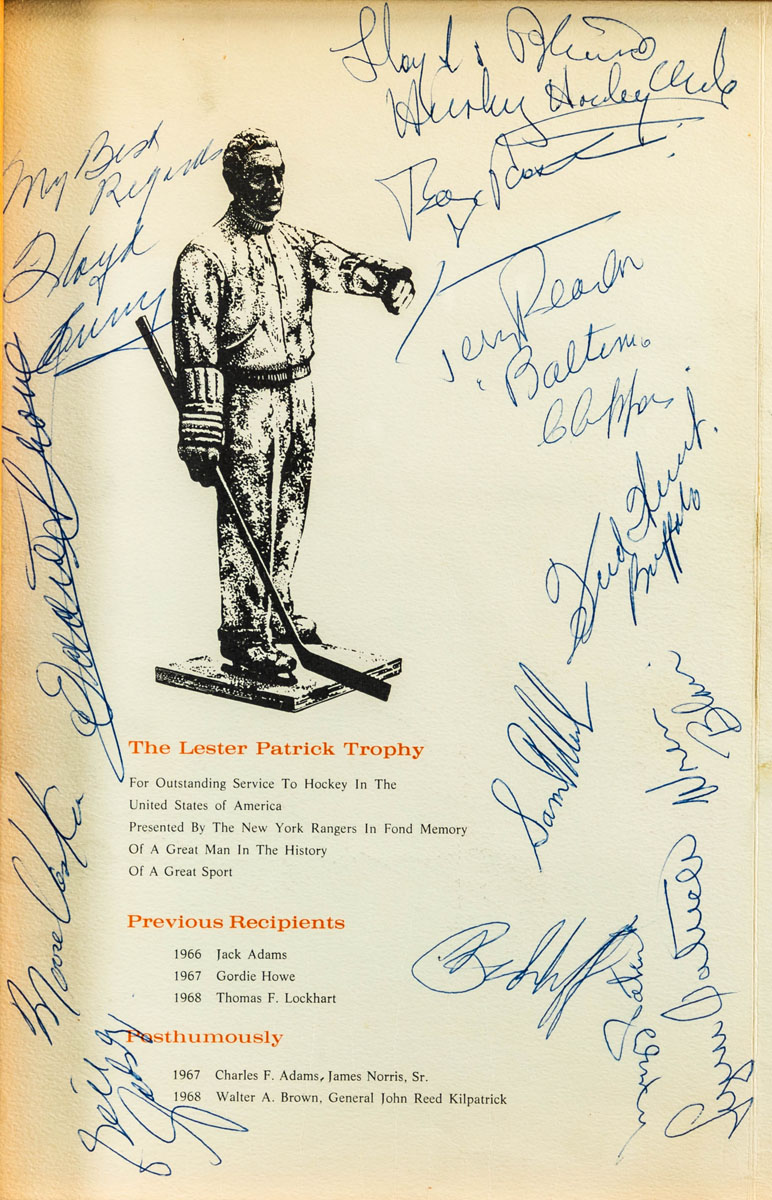 Lloyd
Hershey Hockey Club
My Best
Regards
Floyd
Curry
Terry Reardon
Baltimore
Clippers
Fred Hunt
Buffalo
Wren
Blair
Sam Pollock
The Lester Patrick Trophy
For Outstanding Service To Hockey In The
United States of America
Presented By The New York Rangers In Fond Memory
Of A Great Man In The History
Of A Great Sport
Previous Recipients
1966 Jack Adams
1967 Gordie Howe
1968 Thomas F. Lockhart
Posthumously
1967 Charles F. Adams, James Norris, Sr.
1968 Walter A. Brown, General John Reed Kilpatrick
Bill
Gadsby